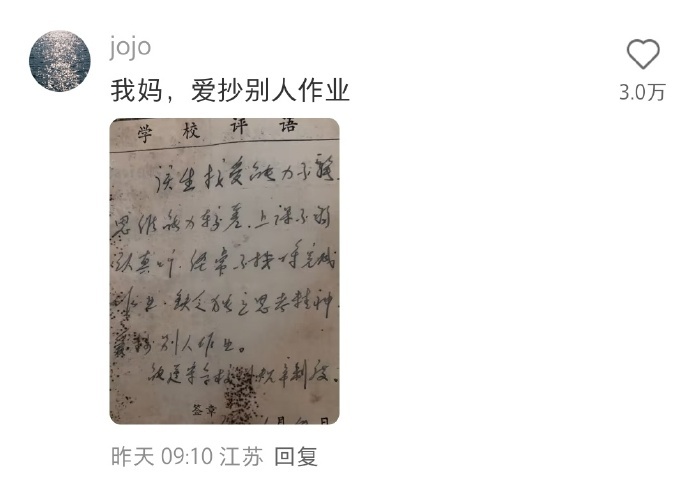 jojo
我妈，爱抄别人作业
3.0万
学校评语
该生接受能力不强.
思维能力较差.上课不够
认真听.经常不按时完成
作业.缺乏独立思考精神.
爱抄别人作业。
能遵守各校规章制度.
签章
月 日
昨天 09:10 江苏 回复